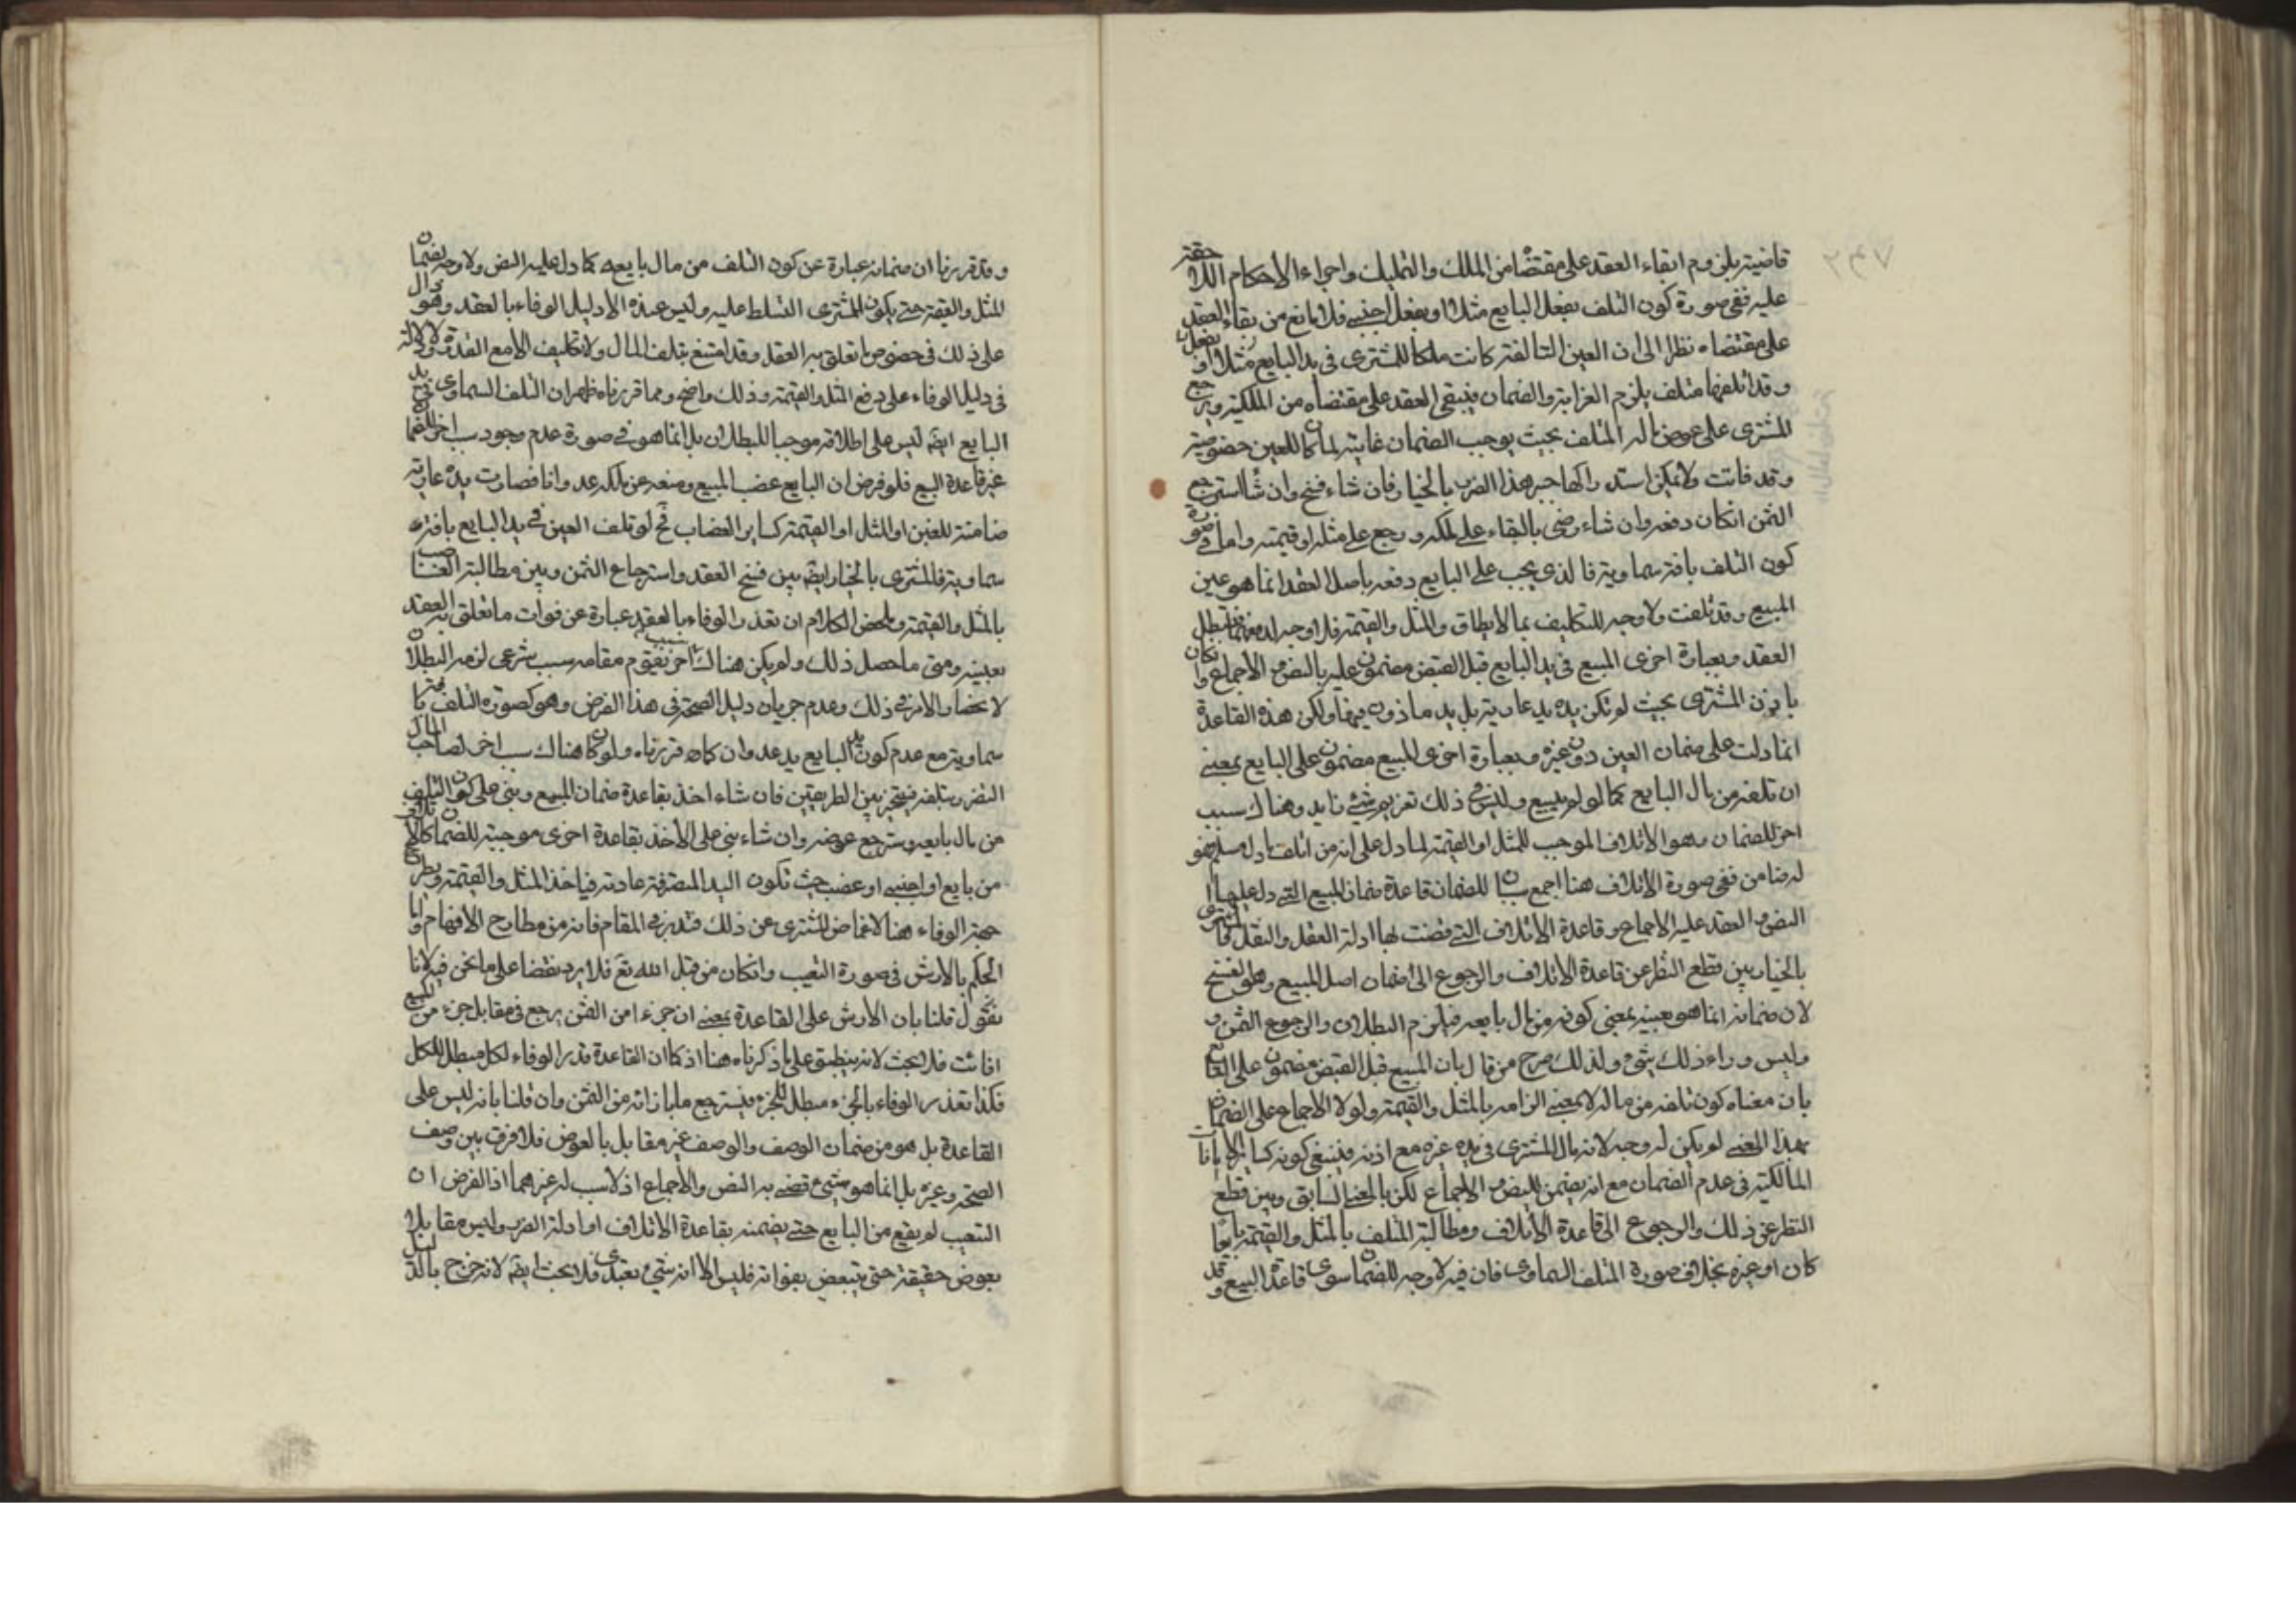 قاضية بلزوم ابقاء العقد على مقتضاه من الملك والتمليك واجراء الاحكام اللاحقة
عليه ففي صورة كون التلف بفعل البايع مثلا او بفعل اجنبي فلا مانع من بقاء العقد
على مقتضاه نظرا الى ان العين التالفة كانت ملكا للمشترى في يد البايع مثلا او
وقد اتلفها متلف يلزم الغرامة والضمان فيبقى العقد على مقتضاه من الملكية ويرجع
المشترى على عوض ماله المتلف بحيث يوجب الضمان غاية لما كان للعين خصوصية
وقد فاتت ولا يمكن استدراكها جبر هذا الضرر بالخيار فان شاء فسخ وان شاء استرجع
الثمن انكان دفعه وان شاء رضى بالبقاء على ملكه ورجع على مثله او قيمته واما في صورة
كون التلف بافة سماوية فالذى يجب على البايع دفعه باصل العقد انما هو عين
المبيع وقد تلفت ولا وجه للتكليف بما لا يطاق والمثل والقيمة فلا وجه فيبطل
العقد وبعبارة اخرى المبيع في يد البايع قبل القبض مضمون عليه بالنص والاجماع وان كان
باذن المشترى بحيث لم تكن يده يد عادية بل يد ماذون فيها ولكن هذه القاعدة
انما دلت على ضمان العين دون غيره وبعبارة اخرى المبيع مضمون على البايع بمعنى
ان تلفه من مال البايع كما لو لم يبيع وليس في ذلك تغريم شئ زايد وهناك سبب
اخر للضمان وهو الاتلاف الموجب للمثل او القيمة لما دل على انه من اتلف مال مسلم فهو
له ضامن ففي صورة الاتلاف هنا اجمع سببان للضمان قاعدة ضمان المبيع التي دل عليها
النص وانعقد عليه الاجماع وقاعدة الاتلاف التي قضت لها ادلة العقل والنقل فالمشترى
بالخيار بين قطع النظر عن قاعدة الاتلاف والرجوع الى ضمان اصل المبيع وهو الفسخ
لان ضمانه انما هو بعينه بمعنى كونه من مال بايعه فيلزم البطلان والرجوع الثمن و
وليس وراء ذلك شئ ولذلك صرح من قال بان المبيع قبل القبض مضمون على البايع
بان معناه كون تلفه من ماله لا بمعنى الزامه بالمثل والقيمة ولولا الاجماع على الضمان
بهذا المعنى لم يكن له وجه لانه مال المشترى في يد غيره مع اذنه فينبغي كونه كساير الامانات
المالكية في عدم الضمان مع انه يضمن للنص والاجماع لكن بالمعنى السابق وبين قطع
النظر عن ذلك والرجوع الى قاعدة الاتلاف ومطالبة المتلف بالمثل والقيمة بايعا
كان او غيره بخلاف صورة التلف السماوى فان فيه لا وجه للضمان سوى قاعدة البيع وقد
وقد قررنا ان ضمانه عبارة عن كون التلف من مال بايعه كما دل عليه النص ولا وجه لضمان
المثل والقيمة حتى يكون للمشترى التسلط عليه وليس عنده الا دليل الوفاء بالعقد وهو دال
على ذلك في خصوص ما تعلق به العقد وقد امتنع بتلف المال ولا تكليف الا مع القدرة ولا دلالة
في دليل الوفاء على دفع المثل والقيمة وذلك واضح ومما قررناه ظهر ان التلف السماوى في يد
البايع ايضا ليس على اطلاقه موجبا للبطلان بل انما هو في صورة عدم وجود سبب اخر للضمان
غير قاعدة البيع فلو فرض ان البايع غصب المبيع ومنعه عن مالكه عدوانا فصارت يده عادية
ضامنة للعين او المثل او القيمة كساير الغصاب فح لو تلف العين في يد البايع بافة
سماوية فالمشترى بالخيار ايضا بين فسخ العقد واسترجاع الثمن وبين مطالبة الغاصب
بالمثل والقيمة وملخص الكلام ان تعذر الوفاء بالعقد عبارة عن فوات ما تعلق به العقد
بعينه ومتى ما حصل ذلك ولم يكن هناك اخر يقوم مقامه بسبب شرعى لزمه البطلان
لانحصار الامر في ذلك وعدم جريان دليل الصحة في هذا الفرض وهو كصورة التلف بافة
سماوية مع عدم كون يد البايع يد عدوان كما قررناه ولو كان هناك سبب اخر لصاحب المال
التضرر بتلفه فيتخير بين الطريقين فان شاء اخذ بقاعدة ضمان المبيع وبنى على كون التلف
من مال بايعه ويسترجع عوضه وان شاء بنى على الاخذ بقاعدة اخرى موجبة للضمان كالاتلاف
من بايع او اجنبي او غصب حيث تكون اليد المتصرفة عادية فياخذ المثل والقيمة ويطرح
جهة الوفاء هنا لاغماض المشترى عن ذلك فتدبر في المقام فانه من مطارح الافهام واما
الحكم بالارش في صورة التعيب وانكان من قبل الله تع فلا يرد نقضا على ما نحن فيه لانا
نقول ان قلنا بان الارش على القاعدة بمعنى ان جزءا من الثمن يرجع في مقابل جزء من المبيع
فائت فلا بحث لانه ينطبق على ما ذكرناه هنا اذ كما ان القاعدة تعذر الوفاء لكل مبطل للكل
فكذا تعذر الوفاء بالجزء مبطل للجزء فيسترجع ما بازائه من الثمن وان قلنا بانه ليس على
القاعدة بل هو من ضمان الوصف والوصف غير مقابل بالعوض فلا فرق بين وصف
الصحة وغيره بل انما هو شئ قضى به النص والاجماع اذ لا سبب له غيرهما اذ الفرض ان
التعيب لم يقع من البايع حتى يضمنه بقاعدة الاتلاف او ادلة الضرر وليس مقابلا
بعوض حقيقة حتى يتبعض بفواته فليس الا انه شئ تعبدى فلا بحث ايضا لانه خرج بالدليل